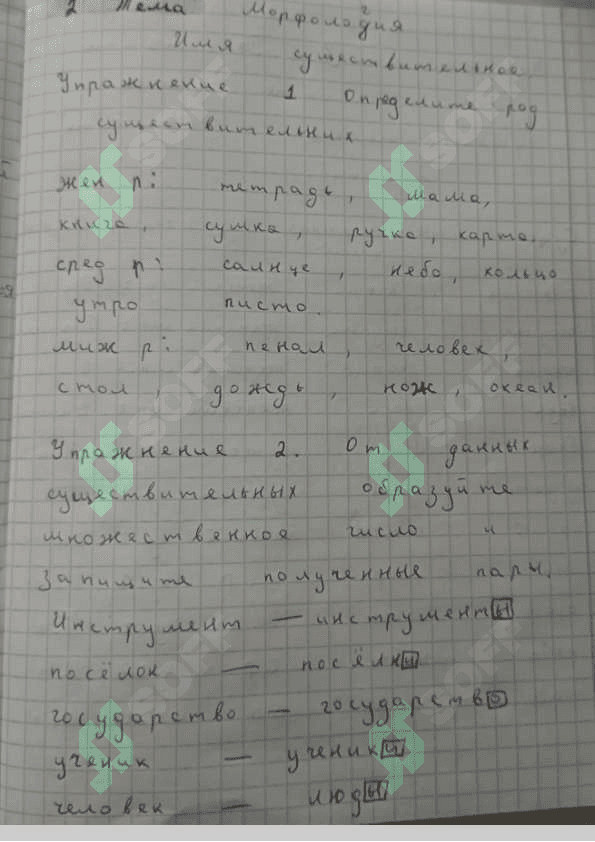 2 Тема Морфология
Имя существительное
Упражнение 1 Определите род
существительних
жен р: тетрадь, мама,
книга, сумка, ручка, карта.
сред р: салнце, небо, кольцо
утро писто.
миж р: пенал, человек,
стол, дождь, нож, океан.
Упражнение 2. От данных
существительных образуйте
множественное число и
Запишите полученные пары.
Инструмент — инструменты
посёлок — посёлки
государство — государство
ученик — ученики
человек — люды
SOFF
SOFF
SOFF
SOFF
SOFF
SOFF